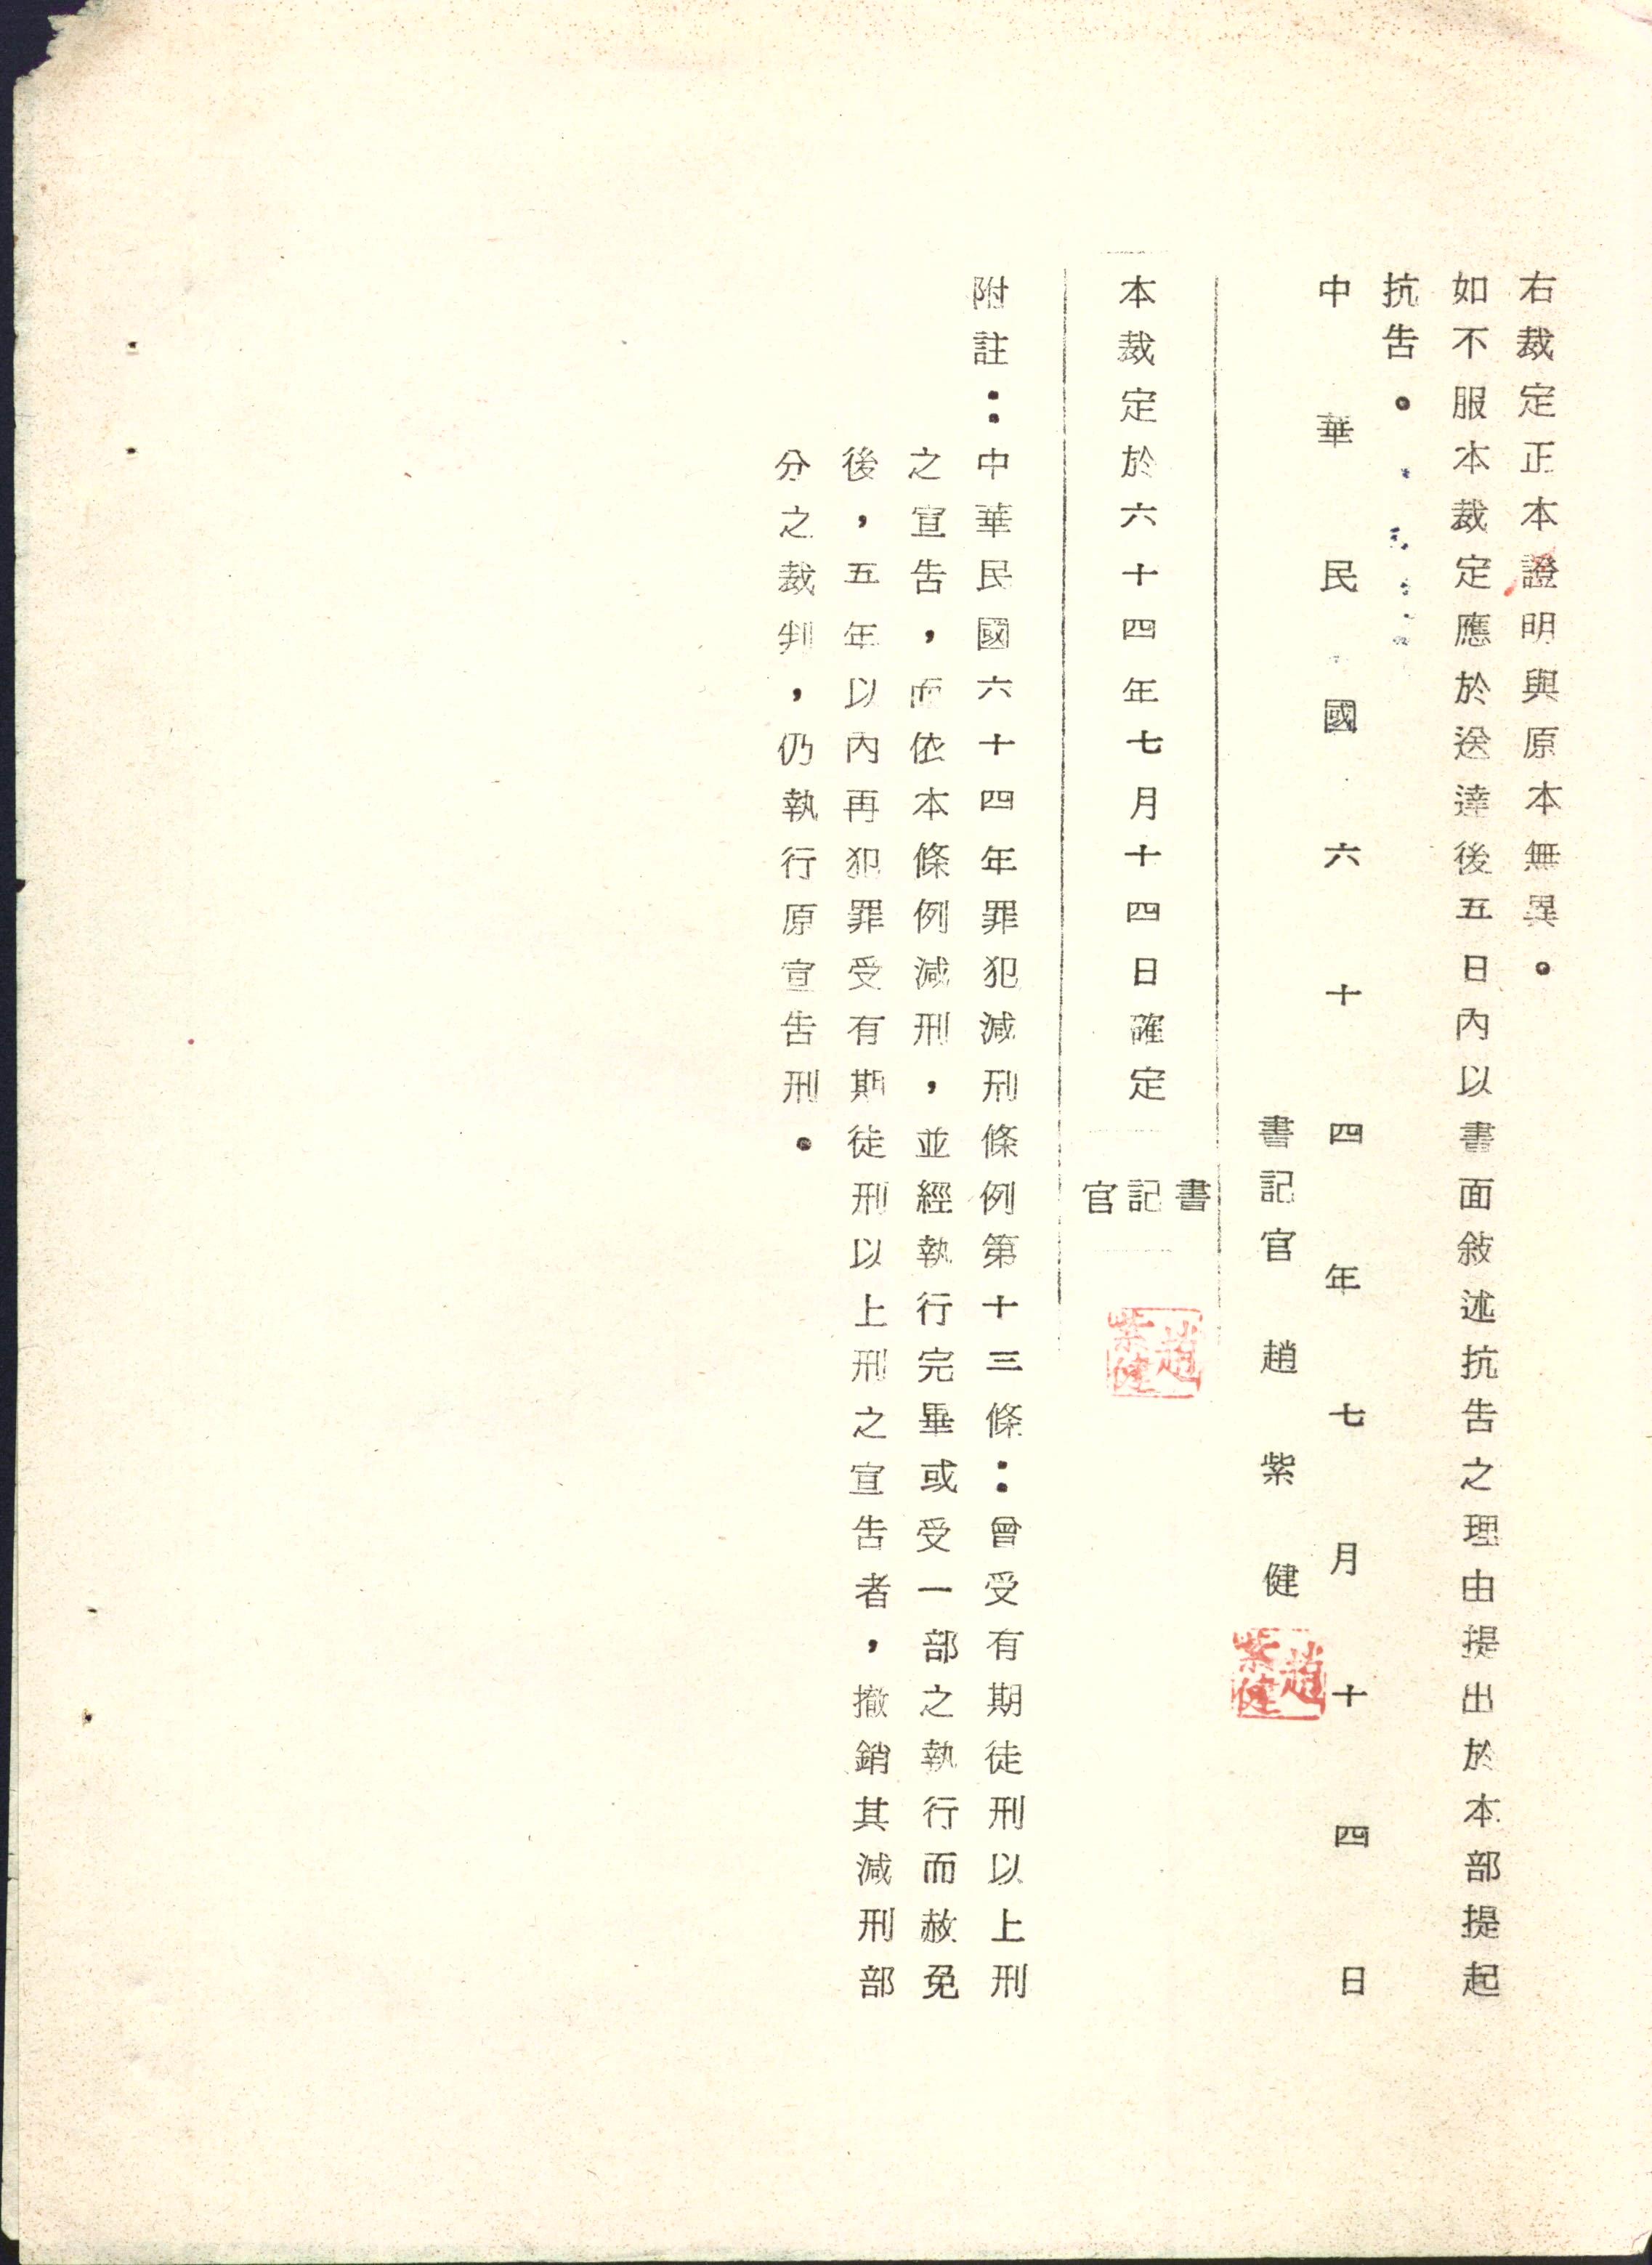 右裁定正本證明與原本無異。
如不服本裁定應於送達後五日內以書面敍述抗告之理由提出於本部提起
抗告。
中華民國六十四年七月十四日
書記官 趙紫健
趙紫健
本裁定於六十四年七月十四日確定
書記官
趙紫健
附註：中華民國六十四年罪犯減刑條例第十三條：曾受有期徒刑以上刑
之宣告，而依本條例減刑，並經執行完畢或受一部之執行而赦免
後，五年以內再犯罪受有期徒刑以上刑之宣告者，撤銷其減刑部
分之裁判，仍執行原宣告刑。